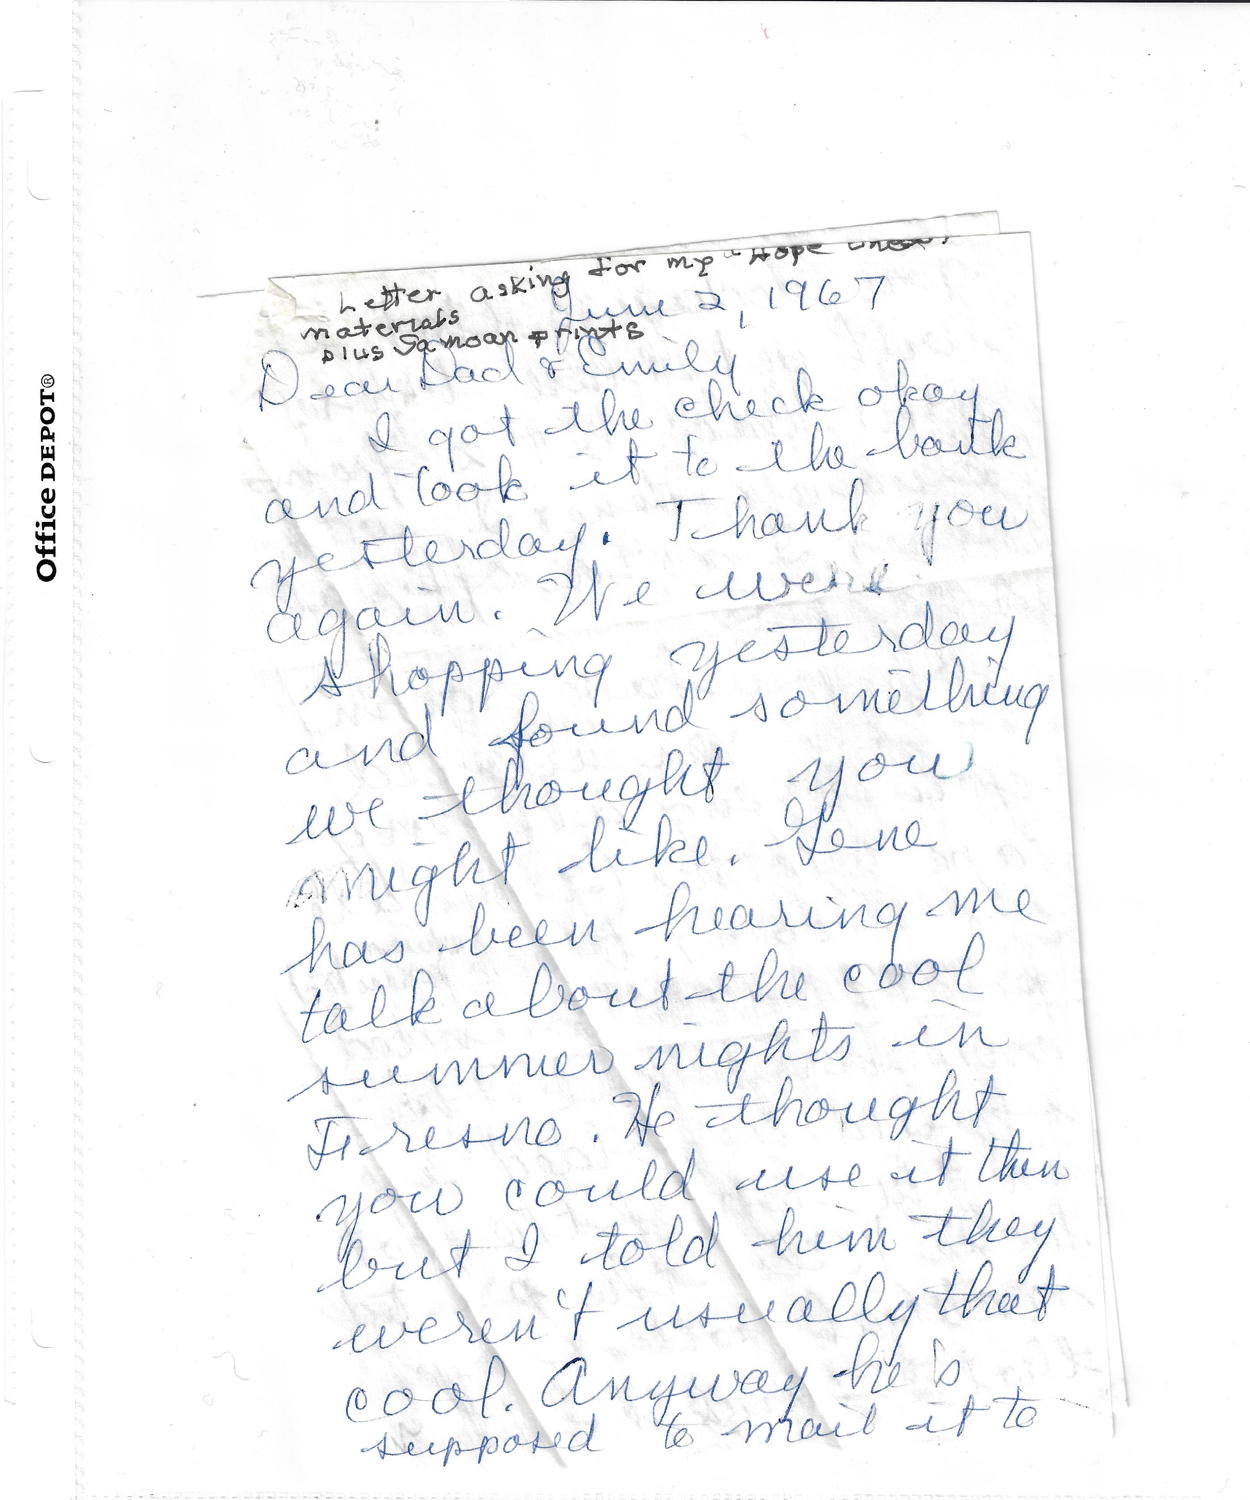 Office DEPOT®
Letter asking for my "Hope Chest"
materials
plus Samoan prints
June 2, 1967
Dear Dad & Emily
I got the check okay
and took it to the bank
yesterday. Thank you
again. We were
shopping yesterday
and found something
we thought you
might like. Gene
has been hearing me
talk about the cool
summer nights in
Fresno. He thought
you could use it then
but I told him they
weren't usually that
cool. Anyway he's
supposed to mail it to